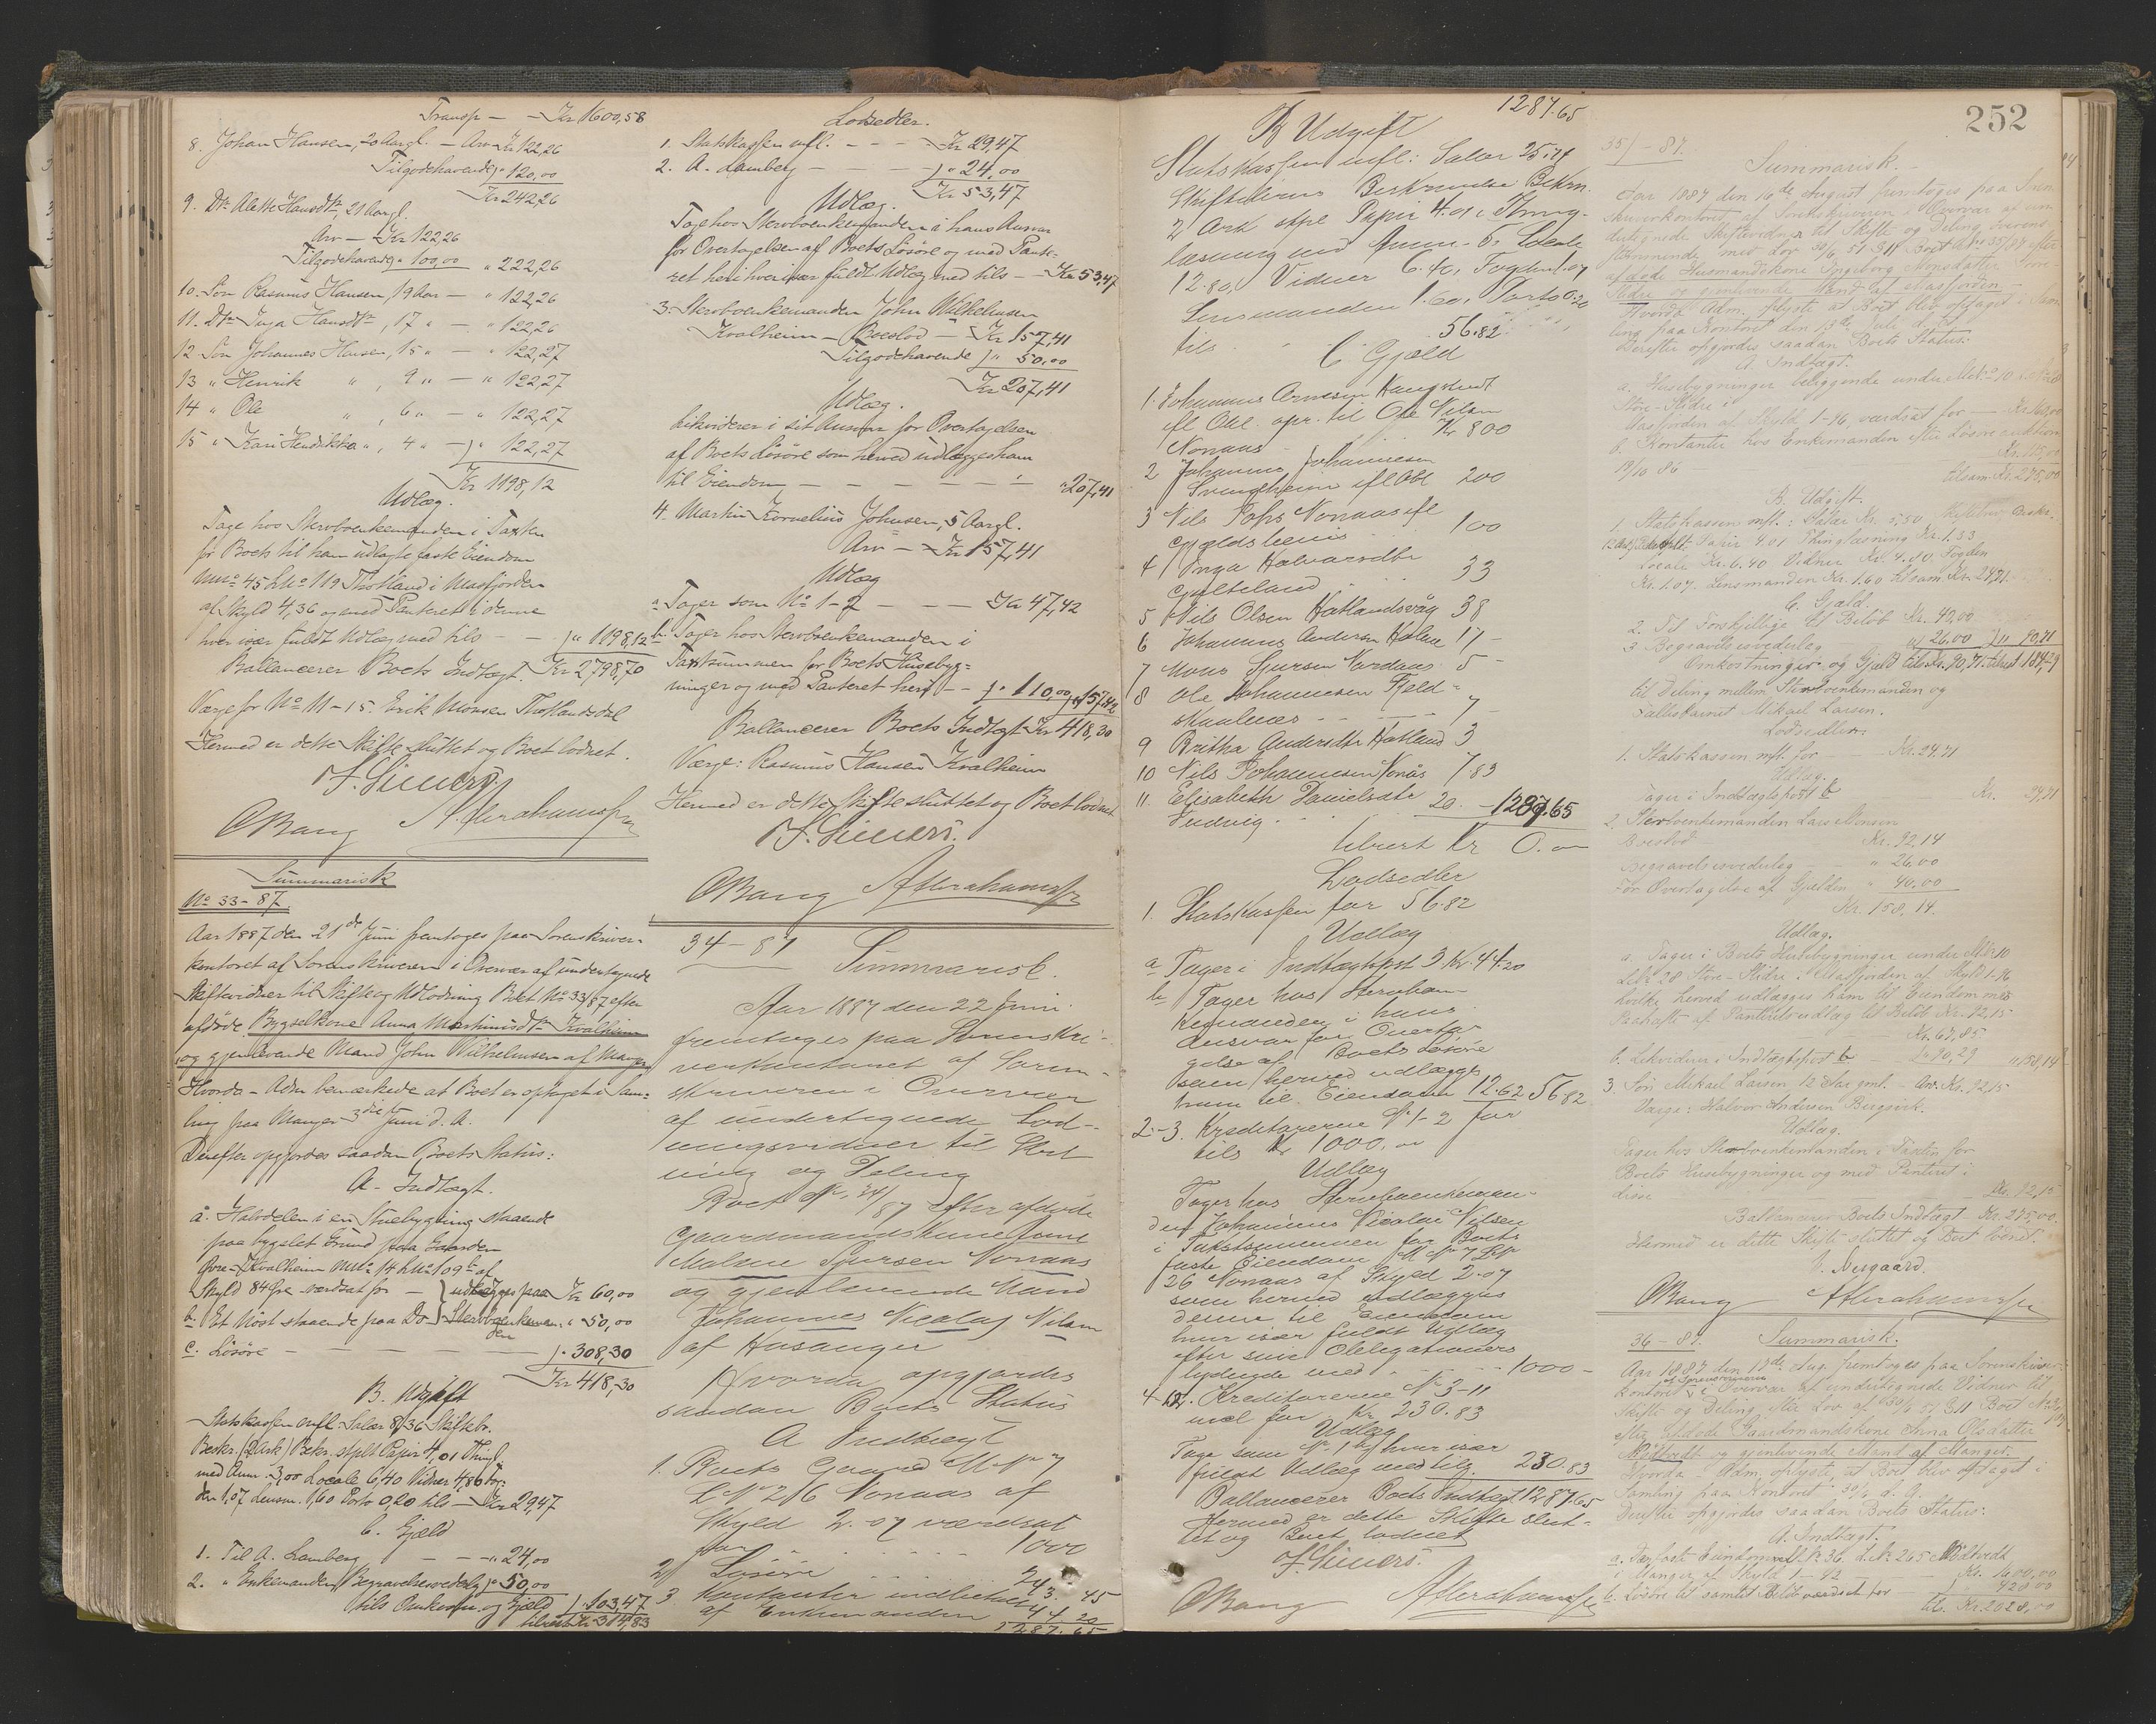 Transp — — Kr 1600,58
8. Johan Hansen, 20 Aargl. — Arv Kr 122,26
Tilgodehavende „ 120,00
Kr 242,26
9. Dtr Alette Hansdtr, 21 Aargl.
Arv — Kr 122,26
Tilgodehavende „ 100,00 „ 222,26
10. Søn Rasmus Hansen, 19 Aar — „ 122,26
11. Dtr Inga Hansdtr, 17 „ — „ 122,26
12 Søn Johannes Hansen, 15 „ — „ 122,27
13 „ Henrik „ , 9 „ — „ 122,27
14 „ Ole „ , 6 „ — „ 122,27
15 „ Kari Hendrikka „ , 4 „ — „ 122,27
Kr 1198,12
Udlæg.
Tage hos Stervboenkemanden i Taxten
for Boets til ham udlagte faste Eiendom
Mno 45 LNo 119 Thotland i Masfjorden
af Skyld 4,36 og med Panteret i denne
hver især fuldt Udlæg med tils — — „ 1198,12
Ballancerer Boets Indtægt. Kr 2,798,70
Værge for No 11 – 15. Erik Monsen Thotlandsdal
Hermed er dette Skifte sluttet og Boet lodnet.
OBang
Summarisk
No 33 – 87.
Aar 1887 den 21de Juni fremtoges paa Sorenskriver-
kontoret af Sorenskriveren i Overvær af undertegnede
Skiftevidner til Skifte og Udlodning Boet No 33/87 efter
afdøde Bygselkone Anna Martinusdtr Kvalheim
og gjenlevende Mand John Wilhelmsen af Manger
Hvorda – Adm bemærkede at Boet er optaget i Sam-
ling paa Manger 3die Juni d. A.
Derefter opgjordes saadan Boets Status:
A – Indtægt.
a. Halvdelen i en Stuebygning staaende
paa bygslet Grund paa Gaarden
Øvre-Kvalheim MNo 14 LNo 109b af
Skyld 84 Øre værdsat for — } udlægges paa Kr 60,00
b. Et Nøst staaende paa Do } Stervboenkeman- „ 50,00
den
c. Løsøre — — — — — „ 308,30
Kr 418,30
B. Udgift
Statskassen mfl: Salær 8,36 Skiftebr.
Beskr. (2 Ark) Bekr. stplt Papir 4,01 Thingl.
med Ann. 3,00 Locale 6,40 Vidner 4,80 Fog-
den 1,07 Lensm. 1,60 Porto 0,20 tils — Kr 29,47
C. Gjæld
1. Til A. Lamberg — — „ 24,00
2. „ Enkemanden Begravelsesvederlag „ 50,00
tils Omkostn. og Gjæld „ 103,47
tilrest Kr 314,83
Lodsedler.
1. Statskassen mfl. — — — Kr 29,47
2. A. Lamberg — — — „ 24,00
Kr 53,47
Udlæg.
Tage hos Stervboenkemanden i hans Ansvar
for Overtagelsen af Boets Løsøre og med Pante-
ret heri hver især fuldt Udlæg med tils — Kr 53,47
3. Stervboenkemanden John Wilhelmsen
Kvalheim — Boeslod — Kr 157,41
Tilgodehavende „ 50,00
Kr 207,41
Udlæg.
Likviderer i sit Ansvar for Overtagelsen
af Boets Løsøre som herved udlægges ham
til Eiendom — — — — — — „ 207,41
4. Martin Kornelius Johnsen, 5 Aargl.
Arv — Kr 157,41
Udlæg
a. Tager som No 1 – 2 — — — Kr 47,42
b. Tager hos Stervboenkemanden i
Taxtsummen for Boets Husebyg-
ninger og med Panteret heri — — „ 110,00 „ 157,42
Ballancerer Boets Indtægt Kr 418,30
Værge: Rasmus Hansen Kvalheim
Hermed er dette Skifte sluttet og Boet lodnet
OBang
34 – 87 Summarisk.
Aar 1887 den 22 Juni
fremtoges paa Sorenskri-
verkontoret af Soren-
skriveren i Overvær
af undertegnede Lod-
ningsvidner til Slut-
ning og Deling
Boet No 34/87 efter afdøde
Gaardmandskone
Malene Sjursen Nonaas
og gjenlevende Mand
Johannes Nicolay Nilsen
af Hosanger
Hvorda opgjordes
saadan Boets Status
A Indtægt
1. Boets Gaard M No 7
L No 26 Nonaas af
Skyld 2.07 værdsat
for . . . . 1000
2) Løsøre . . . 243. 45
3. Kontanter indbetalt
af Enkemanden 44. 20
1287. 65
1287.65
B Udgift
Statskassen mfl: Salær 25.74
Skiftebrevs Beskrivelse Bekrn.
2 Ark stpl Papir 4.01, Thing-
læsning med Ann. 5, Locale
12.80, Vidner 6.40, Fogden 1.07
Lensmanden 1.60, Porto 0.20
tils . . 56.82
C Gjæld
1. Johannes Arnesen Haugstvedt
ifl Obl. opr. til Ole Nilsen
Nonaas Kr 800
2 Johannes Johannesen
Svendheim ifl Obl 200
3 Nils Pohs Nonaas ifl
Gjældsbevis . . 100
4 Inga Halvarsdtr
Gulteland . . 33
5 Nils Olsen Hatlandsvåg 38
6 Johannes Andersen Hatland 17 –
7 Mons Sjursen Nordaas 5 –
8 Ole Johannesen Fjeld-
skaalnæs — — — 7 –
9 Britha Andersdtr Hatland 3
10 Nils Johannesen Nonås 7 83
11. Elisabeth Danielsdtr
Indvig . . 20. – 1287.65
tilrest Kr 0.00
Lodsedler
1. Statskassen for 56.82
Udlæg
a Tager i Indtægtspost 3 Kr. 44.20
b Tager hos Stervboen-
kemanden i hans
Ansvar for Overta-
gelse af Boets Løsøre
som herved udlægges
ham til Eiendom 12.62 56.82
2–3. Kreditorerne No 1–2 for
tils Kr 1000.00
Udlæg
Tager hos Stervboenkeman-
den Johannes Nicolai Nilsen
i Takstsummen for Boets
faste Eiendom M No 7 L No
26 Nonaas af Skyld 2.07
som herved udlægges
denne til Eiendom
hver især fuldt Udlæg
efter sine Obligationers
lydende med . . . 1000 –
4–12. Kreditorerne No 3–11
incl for Kr. 230.83
Udlæg
Tage som No 1 b, hver især
fuldt Udlæg med tils. 230.83
Ballancerer Boets Indtægt 1287.65
Hermed er dette Skifte slut-
tet og Boet lodnet
OBang
252
35/ – 87.
Summarisk.
Aar 1887 den 16de August fremtoges paa Soren-
skriverkontoret af Sorenskriveren i Overvær af un-
dertegnede Skiftevidner til Skifte og Deling
afdøde Husmandskone Ingeborg Monsdatter
Hvorda Adm. oplyste at Boet blev optaget i Sam-
ling paa Kontoret den 13de Juli
Derefter opgjordes saadan Boets Status:
A. Indtægt.
a. Husebygninger beliggende under MNo 10 LNo 28
Store-Skidre i
Masfjorden af Skyld 1–76, værdsat for — Kr. 160,00
b. Kontanter hos Enkemanden efter Løsøreauktion
19/10 86 — Kr. 115,00
tilsam. Kr. 275,00
B. Udgift.
1. Statskassen mfl.: Salær Kr. 5,50
Papir 4.01 Thinglæsning Kr. 1.33
Locale Kr. 6.40 Vidner Kr. 4.80 Fogden
Kr. 1.07 Lensmanden Kr. 1.60 tilsam. Kr. 24,71
C. Gjæld.
2. Til Forskjellige til Beløb Kr. 40,00
3 Begravelsesvederlag „ 26,00 „ 90,71
Omkostninger og Gjæld tils Kr. 90,71 tilrest 184,29
til Deling mellem Stervboenkemanden og
Fællesbarnet Mikael Larsen.
Lodsedler.
1. Statskassen mfl. for — Kr. 24,71
Udlæg.
Tager i Indtægtspost b Kr. 24,71
2. Stervboenkemanden Lars Monsen
Boeslod — Kr. 92,14
Begravelsesvederlag — „ 26,00
For Overtagelse af Gjælden „ 40,00
Kr. 158,14.
Udlæg.
a. Tager i Boets Husebygninger under MNo 10
LNo 28 Store Skidre i Masfjorden af Skyld 1–76
hvilke herved udlægges ham til Eiendom mod
Paahæfte af Panteretsudlæg til Beløb Kr. 92,15
Kr. 67,85
b. Likviderer i Indtægtspost b „ 90,29 „ 158,14
3 Søn Mikael Larsen 12 Aar gml. – Arv Kr. 92,15
Værge: Halvor Andersen Bergsvik.
Udlæg.
Tager hos Stervboenkemanden i Taxten for
Boets Husebygninger og med Panteret i
disse — Kr. 92,15
Ballancerer Boets Indtægt Kr. 275,00.
Hermed er dette Skifte sluttet og Boet lodnet.
OBang
36 – 87. Summarisk.
Aar 1887 den 19de Aug. fremtoges paa Sorenskriver-
af Sorenskriveren
kontoret i Overvær af undertegnede Vidner til
Skifte og Deling efter Lov af 30/7 51 § 11 Boet No 36/87
efter afdøde Gaardmandskone Anna Olsdatter
Midtvedt og gjenlevende Mand af Manger.
Hvorda – Adm. oplyste, at Boet blev optaget i
Samling paa Kontoret d. A.
Derefter opgjordes saadan Boets Status:
A. Indtægt.
a. Den faste Eiendom M.Nr. 36. L.Nr. 265 Midtvedt
i Manger af Skyld 1–92 — Kr. 1600,00
b. Løsøre til samlet Beløb værdsat for „ 428,00
til. Kr. 2028,00